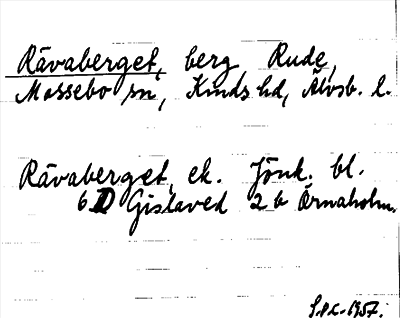 Rävaberget, berg Rude,
Mossebo sn, Kinds hd, Älvsb. l.
Rävaberget, ek. Jönk. bl.
6D Gislaved 2b Örnaholm.
S.p.c. 1957.